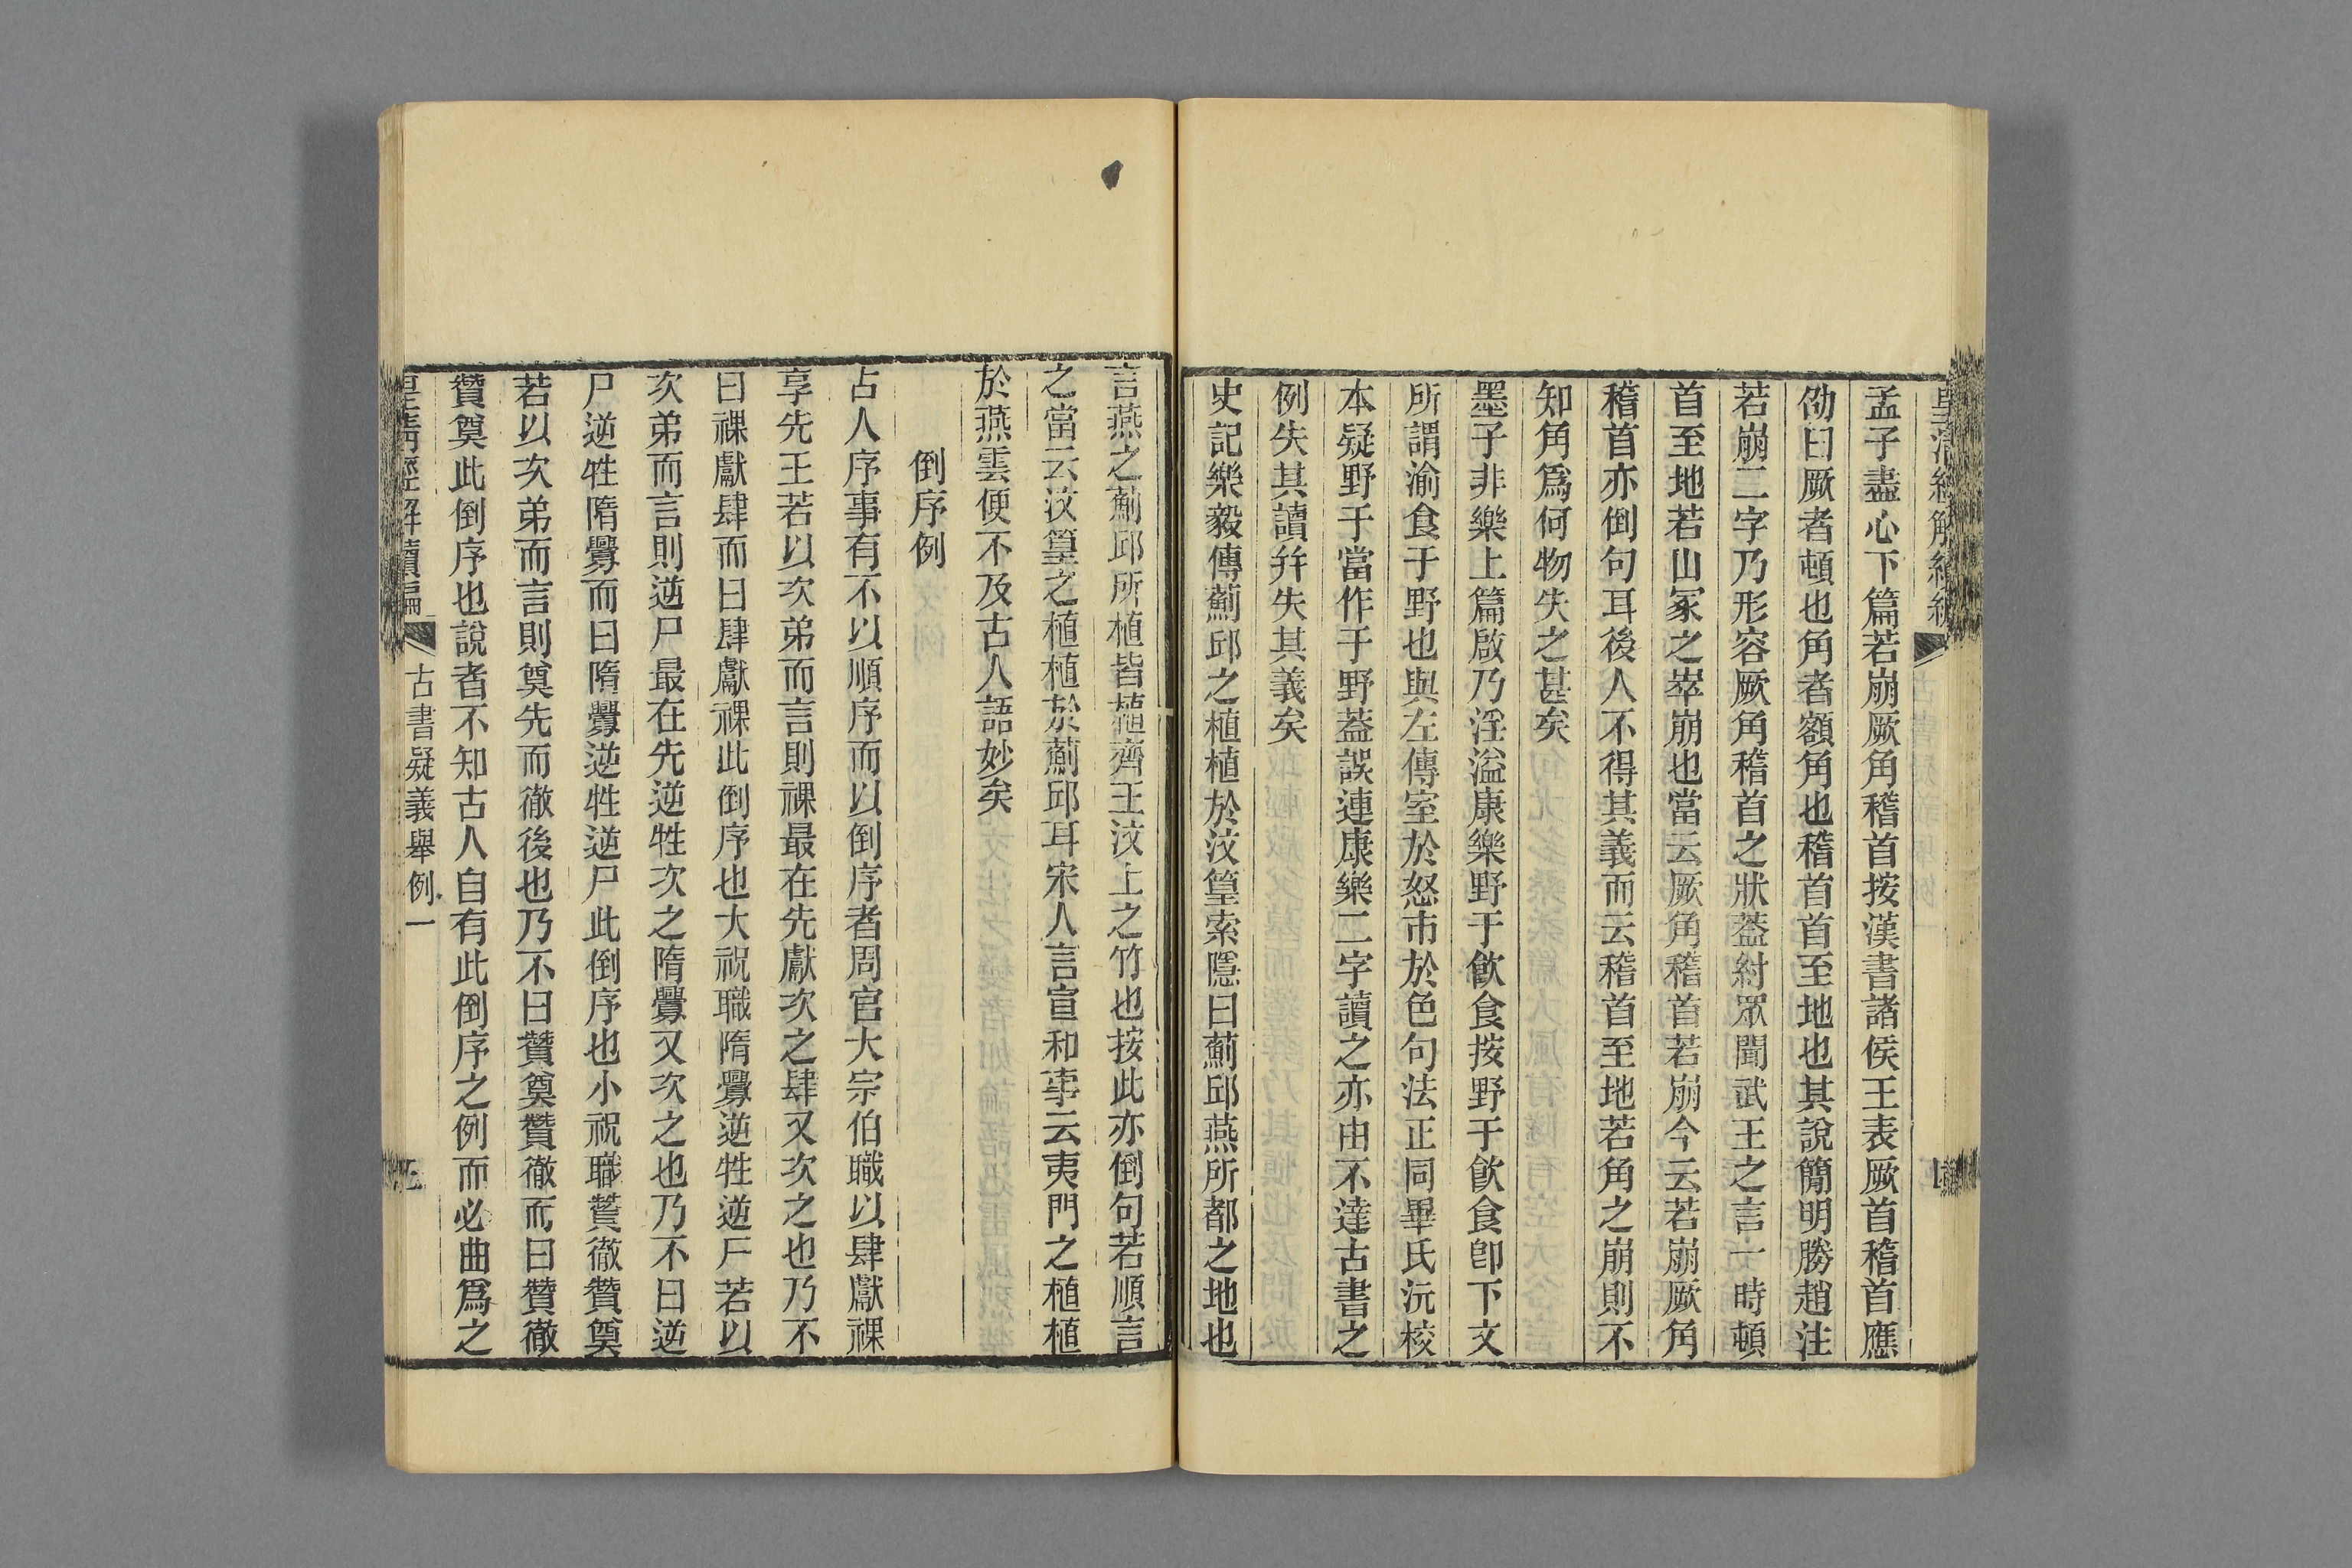 孟子盡心下篇若崩厥角稽首按漢書諸侯王表厥首稽首應
劭曰厥者頓也角者額角也稽首首至地也其說簡明勝趙注
若崩二字乃形容厥角稽首之狀蓋紂眾聞武王之言一時頓
首至地若山冢之崒崩也當云厥角稽首若崩今云若崩厥角
稽首亦倒句耳後人不得其義而云稽首至地若角之崩則不
知角爲何物失之甚矣
墨子非樂上篇啟乃淫溢康樂野于飲食按野于飲食卽下文
所謂渝食于野也與左傳室於怒市於色句法正同畢氏沅校
本疑野于當作于野蓋誤連康樂二字讀之亦由不達古書之
例失其讀幷失其義矣
史記樂毅傳薊邱之植植於汶篁索隱曰薊邱燕所都之地也
言燕之薊邱所植皆植齊王汶上之竹也按此亦倒句若順言
之當云汶篁之植植於薊邱耳宋人言宣和事云夷門之植植
於燕雲便不及古人語妙矣
倒序例
古人序事有不以順序而以倒序者周官大宗伯職以肆獻祼
享先王若以次弟而言則祼最在先獻次之肆又次之也乃不
曰祼獻肆而曰肆獻祼此倒序也大祝職隋釁逆牲逆尸若以
次弟而言則逆尸最在先逆牲次之隋釁又次之也乃不曰逆
尸逆牲隋釁而曰隋釁逆牲逆尸此倒序也小祝職贊徹贊奠
若以次弟而言則奠先而徹後也乃不曰贊奠贊徹而曰贊徹
贊奠此倒序也說者不知古人自有此倒序之例而必曲爲之
皇清經解續編
古書疑義舉例一